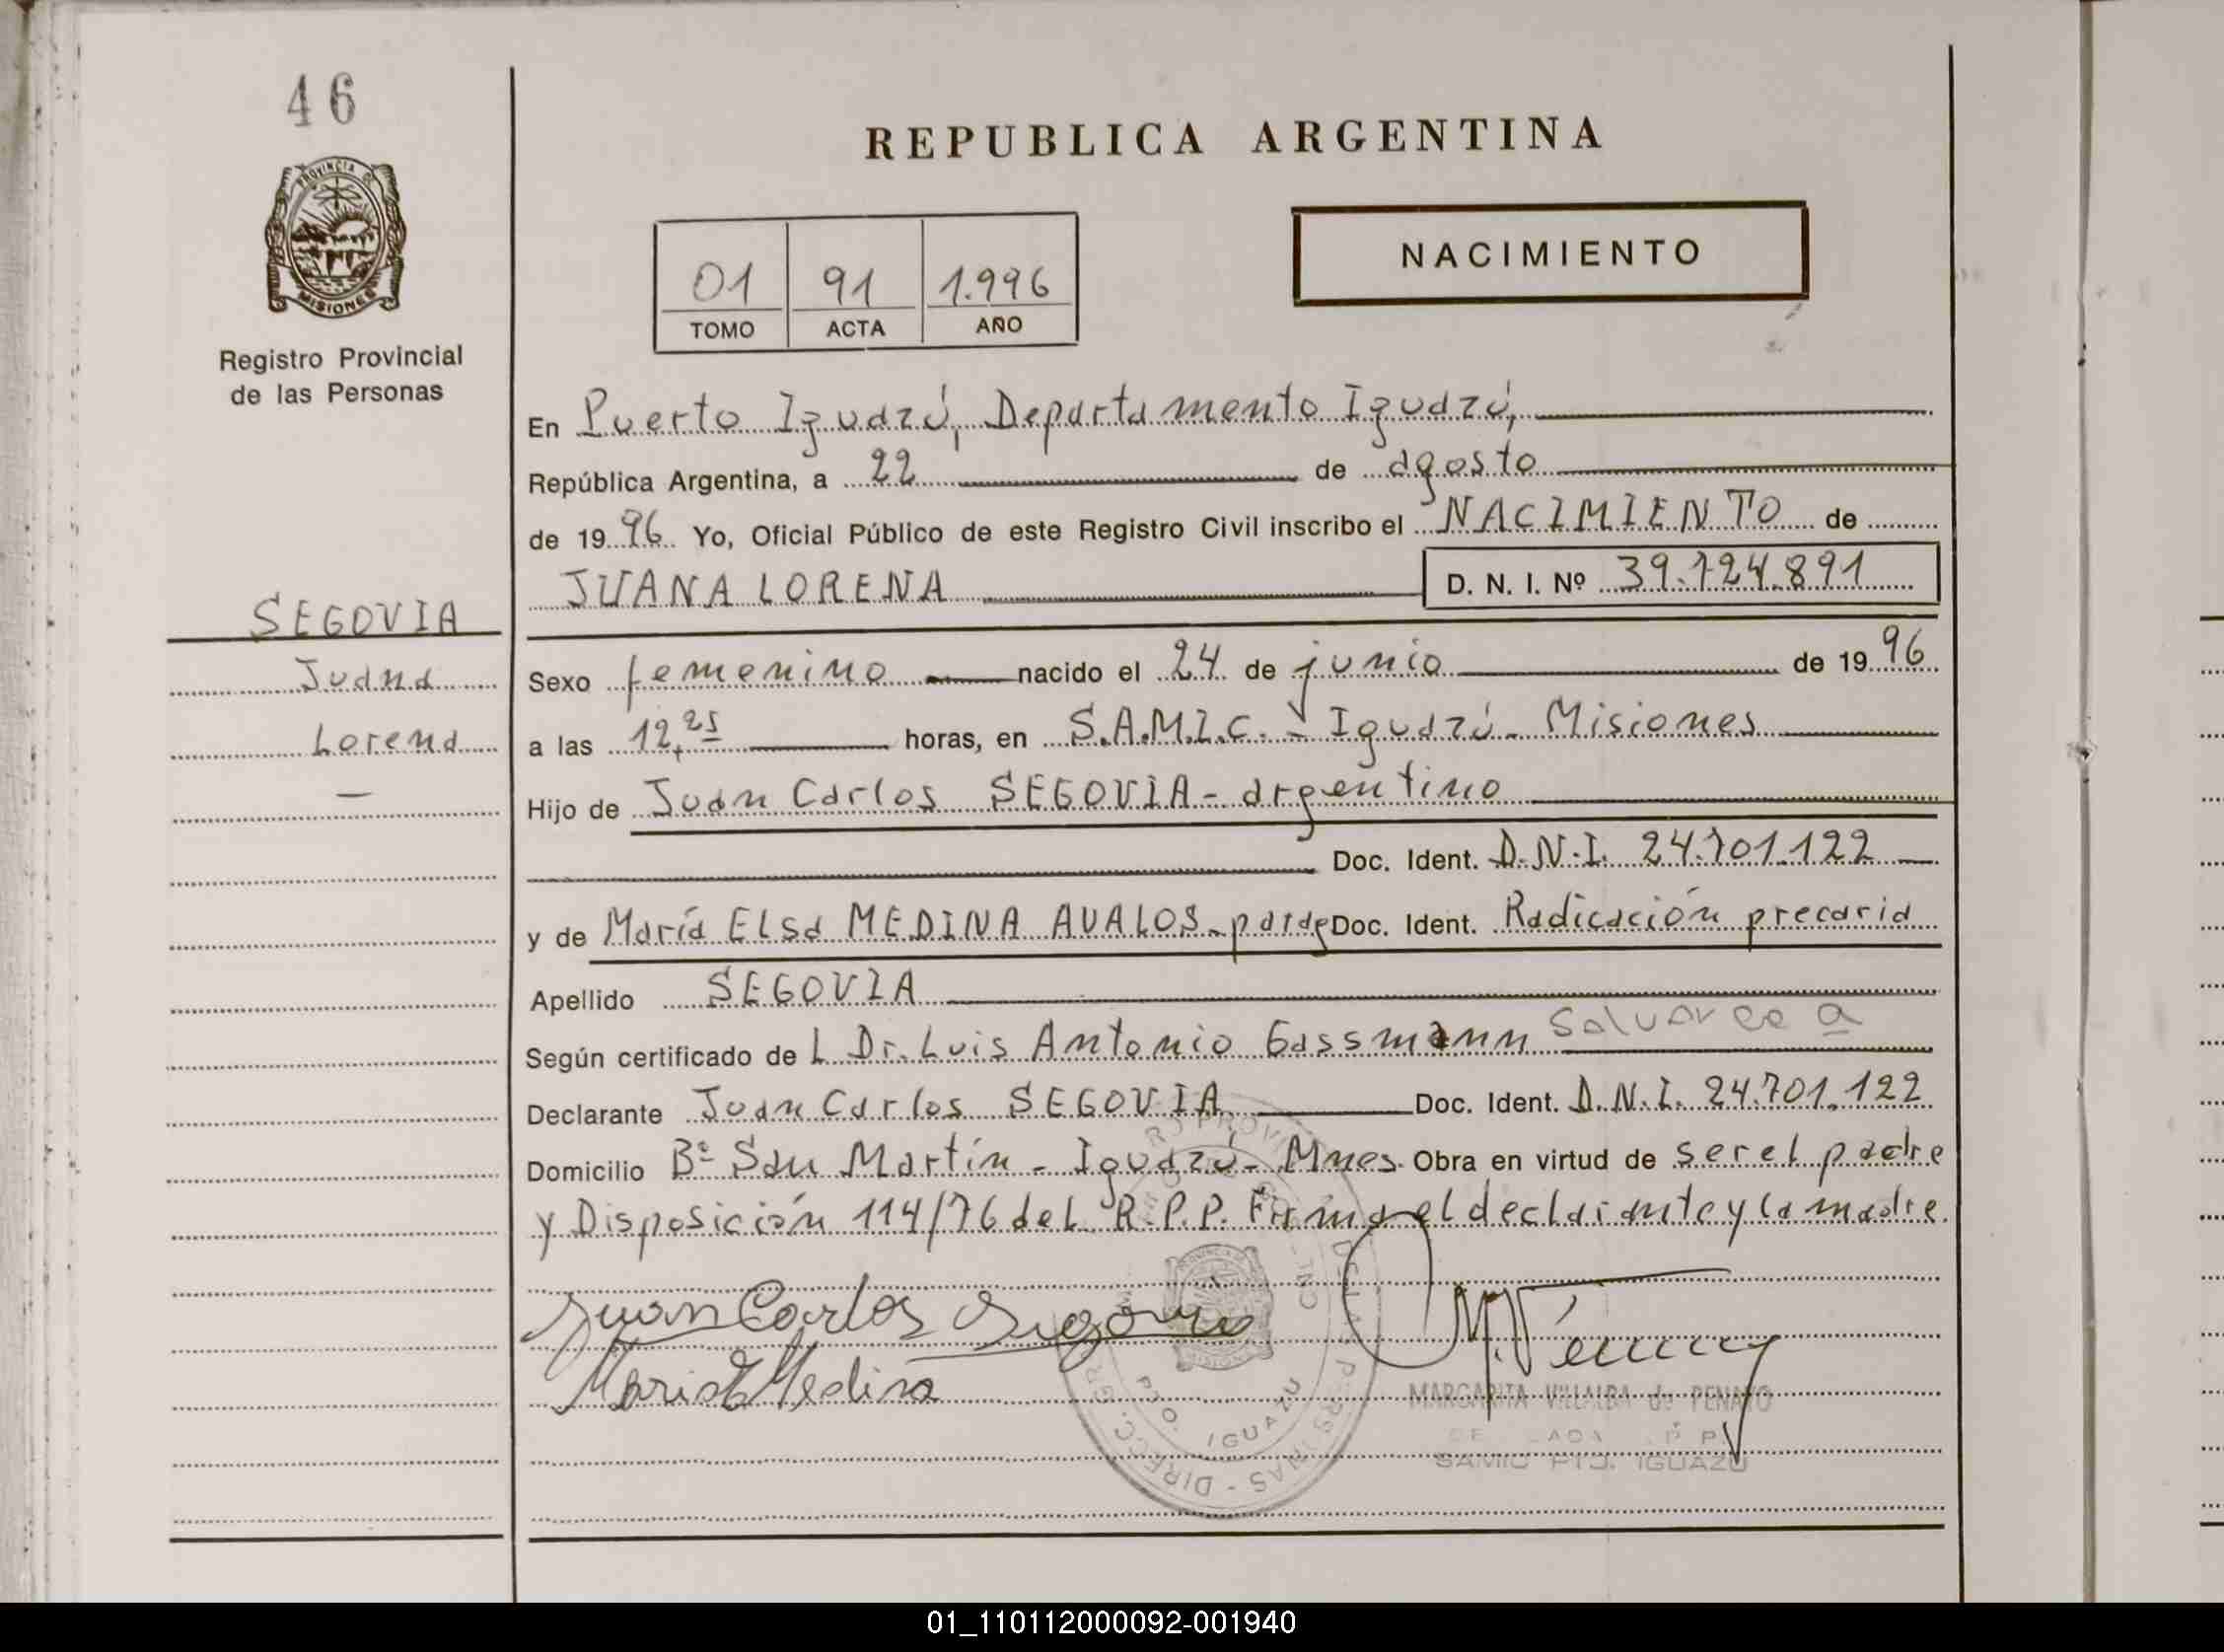 46
PROVINCIA DE
MISIONES
Registro Provincial
de las Personas
REPUBLICA ARGENTINA
01 91 1.996
TOMO ACTA AÑO
NACIMIENTO
En Puerto Iguazú, Departamento Iguazú,
República Argentina, a 22 de agosto
de 1996 Yo, Oficial Público de este Registro Civil inscribo el NACIMIENTO de
JUANA LORENA D. N. I. Nº 39.724.891
SEGOVIA
Juana
Lorena
—
Sexo femenino nacido el 24 de junio de 1996
a las 12,25 horas, en S.A.M.I.C. - Iguazú - Misiones
Hijo de Juan Carlos SEGOVIA - argentino
Doc. Ident. D.N.I. 24.701.122
y de María Elsa MEDINA AVALOS - parag Doc. Ident. Radicación precaria
Apellido SEGOVIA
Según certificado de L Dr. Luis Antonio Gassmann Salvar ee a
Declarante Juan Carlos SEGOVIA Doc. Ident. D.N.I. 24.701.122
Domicilio Bº San Martín - Iguazú - Mnes. Obra en virtud de ser el padre
y Disposición 114/76 del R.P.P. Firma el declarante y la madre.
Juan Carlos Segovia
Maria E Medina
MARGARITA VILLALBA de PENAYO
SAMIC PTO. IGUAZU
PTO. IGUAZU
01_110112000092-001940